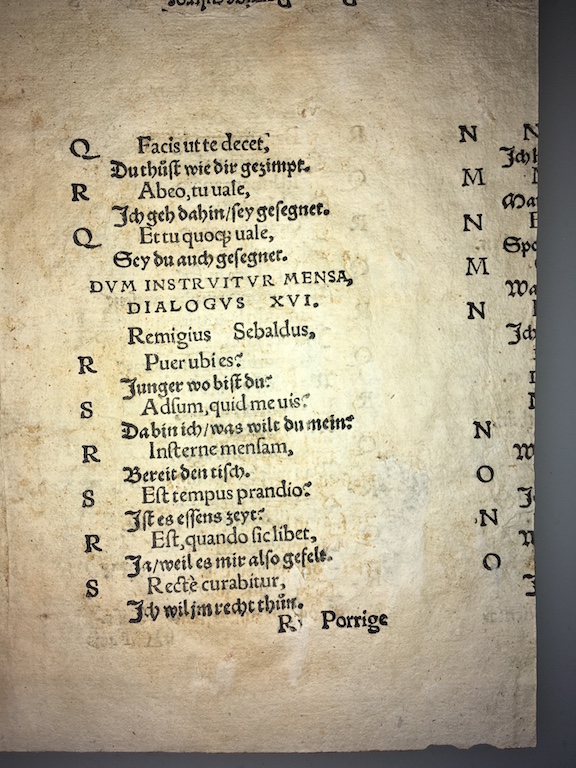 Q Facis ut te decet,
Du thůst wie dir gezimpt.
R Abeo, tu uale,
Ich geh dahin/sey gesegnet.
Q Et tu quoqȝ uale,
Sey du auch gesegnet.
DVM INSTRVITVR MENSA,
DIALOGVS XVI.
Remigius Sebaldus,
R Puer ubi es?
Junger wo bist du?
S Adsum, quid me uis?
Da bin ich/was wilt du mein?
R Insterne mensam,
Bereit den tisch.
S Est tempus prandio?
Ist es essens zeyt?
R Est, quando sic libet,
Ja/weil es mir also gefelt.
S Rectè curabitur,
Ich wil jm recht thůn.
R Porrige
N
M
N
M
N
N
O
N
O